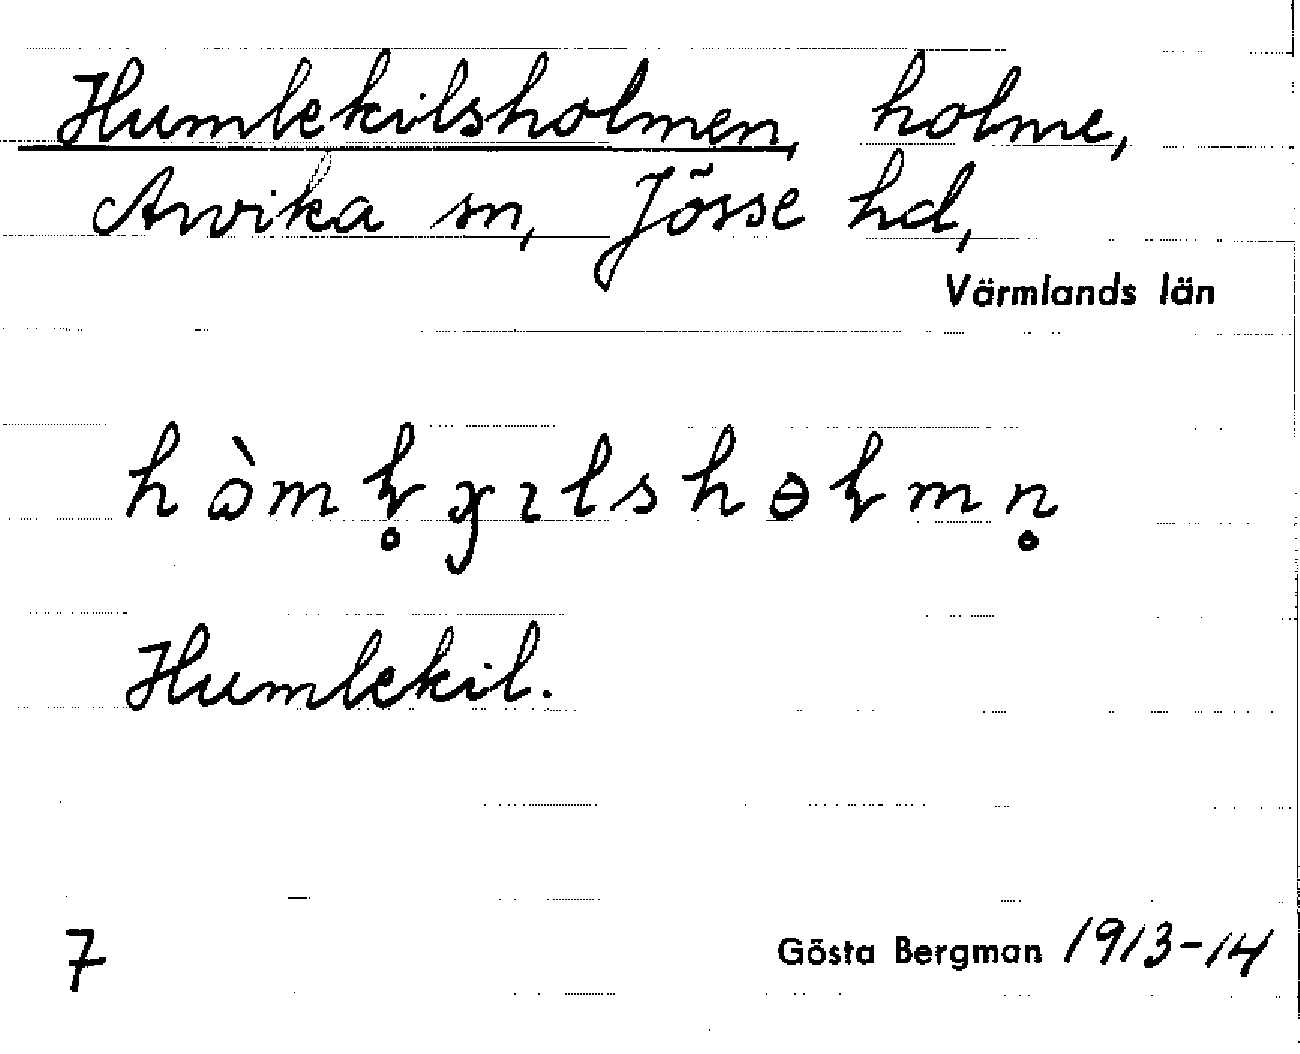 Humlekilsholmen, holme,
Arvika sn, Jösse hd,
Värmlands län
hòmɽ̥ɡɪlshɵɽmn̥
Humlekil.
7
Gösta Bergman 1913-14